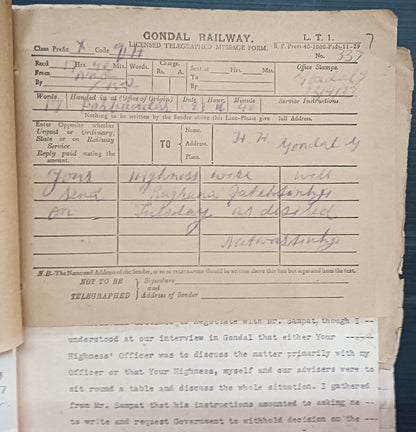 7
GONDAL RAILWAY.
L. T. 1.
LICENSED TELEGRAPHED MESSAGE FORM.
B. P. Press-40-1000-Pads-11-19
Class Prefix X Code
No. 337
Recd 17 Hrs. 40 Mts. Words.
Charge. Rs. A.
Sent at Hrs. Mts.
Office Stamps.
From
To
Gondal
By
By
Words Handed in at (Office of Origin) Date Hour. Minute Service Instructions.
17 Porbandar
Nothing to be written by the Sender above this Line-Please give full Address.
Enter Opposite whether Urgent or Ordinary, State or on Railway Service. Reply paid stating the amount.
TO
Name. Address. Place.
H H Gondal
Your Highness wire will
send Raghana Fatehsinhji
on Tuesday as desired
Natwarsinhji
N.B.-The Name and Address of the Sender, if to be TELEGRAPHED should be written above this line but separated from the text.
NOT TO BE TELEGRAPHED
Signature and Address of Sender
to negotiate with Mr. Sampat, though I
understood at our interview in Gondal that either Your
Highness' Officer was to discuss the matter primarily with my
Officer or that Your Highness, myself and our advisers were to
sit round a table and discuss the whole situation. I gathered
from Mr. Sampat that his instructions amounted to asking me
to write and request Government to withhold decision on the